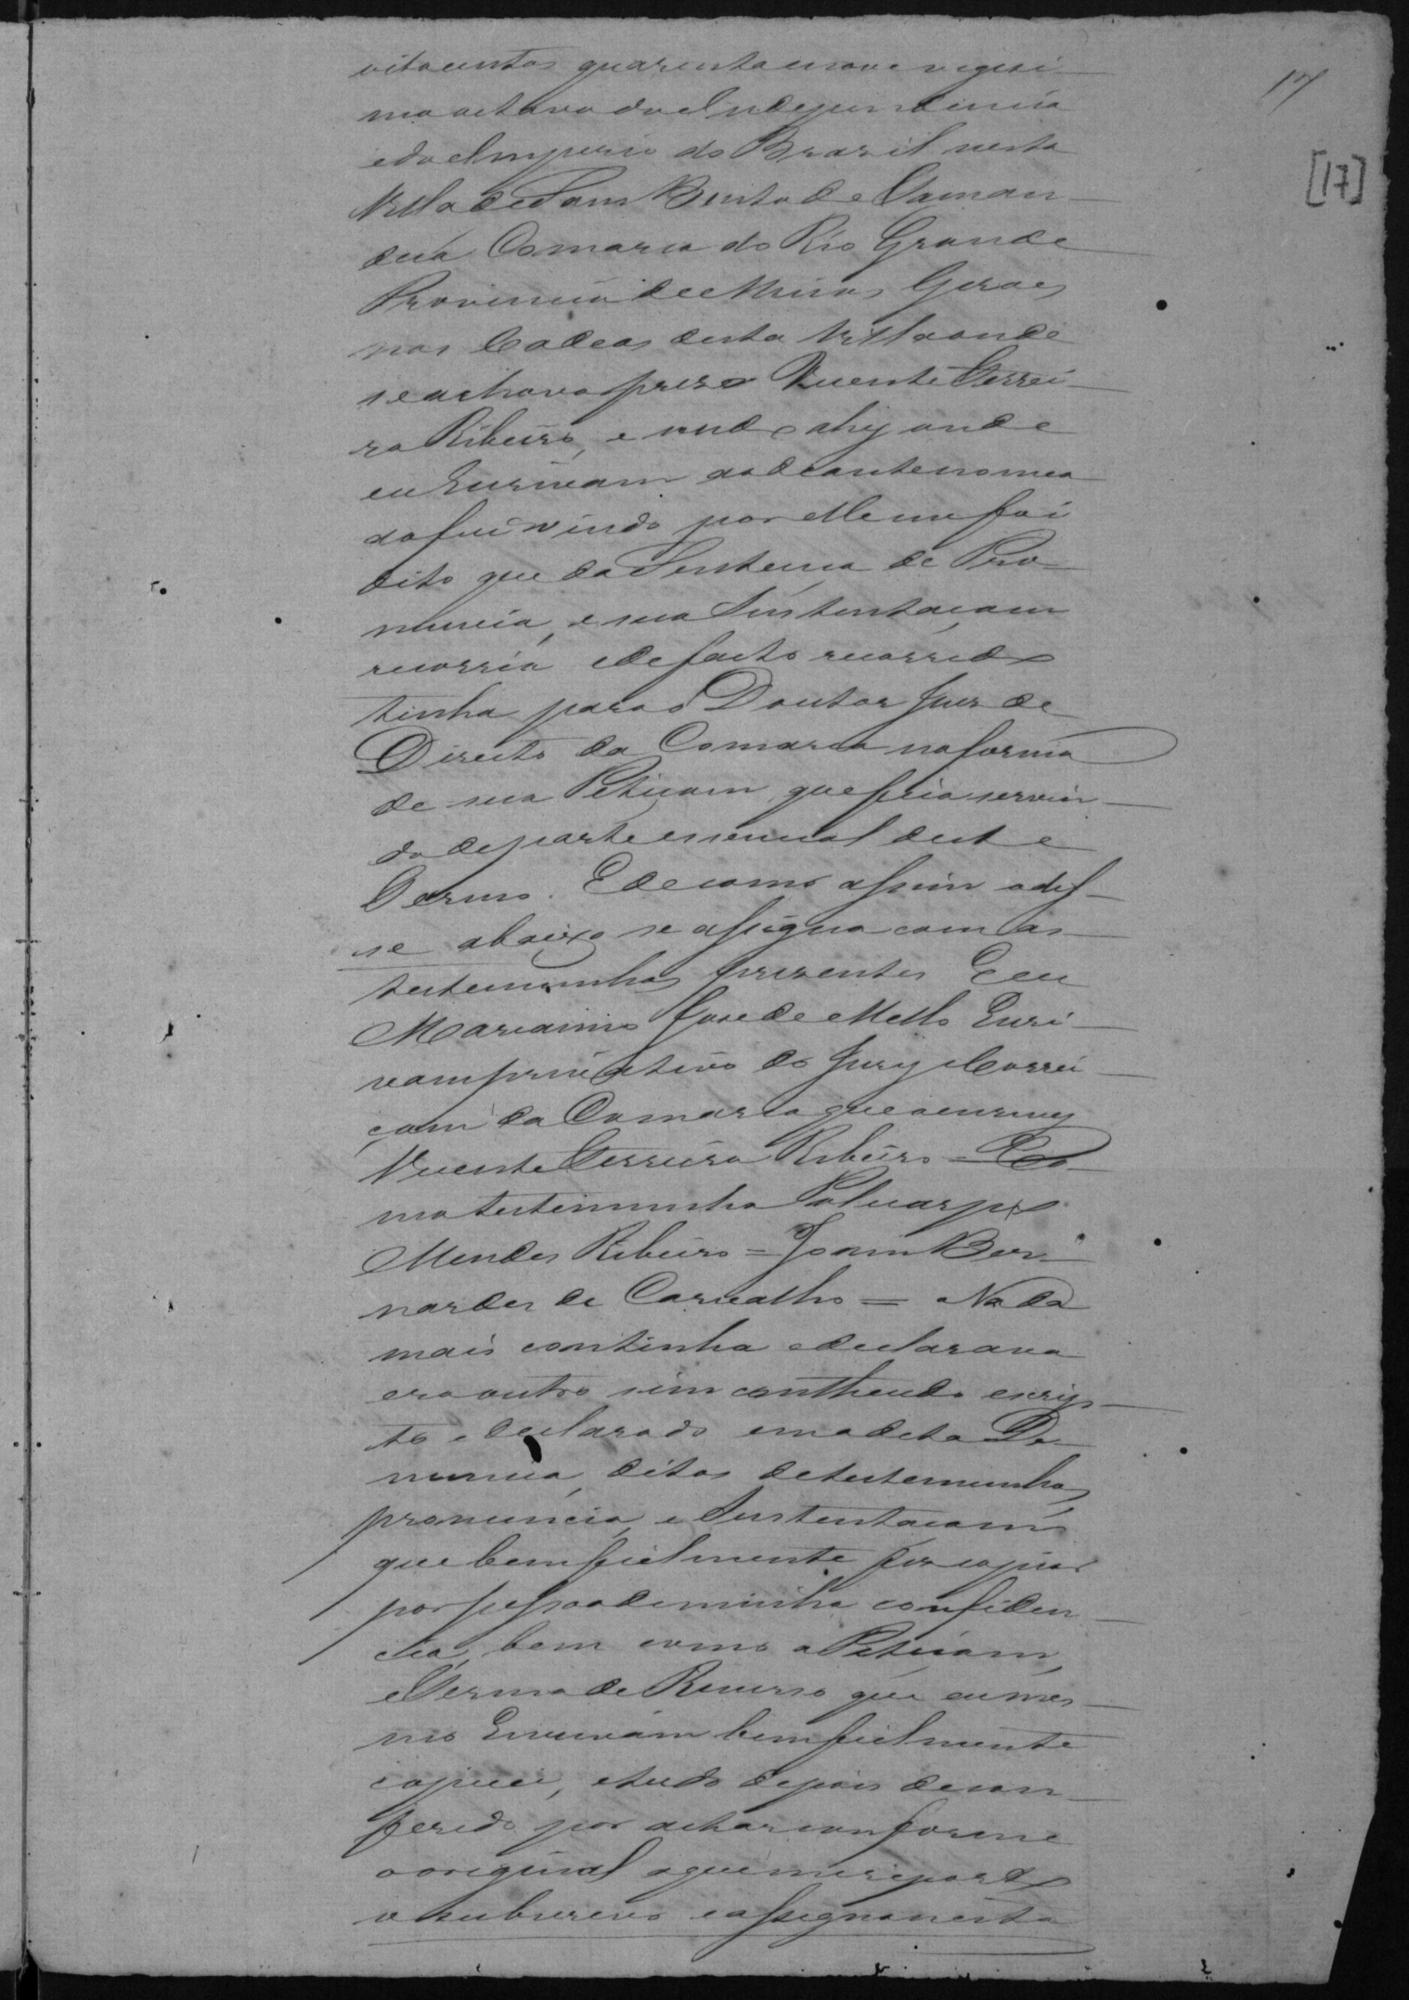 17
[17]
oitocentos quarenta e nove vigesi-
mo oitavo da Independencia
e do Imperio do Brazil nesta
Villa de Sam Bento de Taman-
dua Comarca do Rio Grande
Provincia de Minas Geraes
nas Cadeas desta Villa onde
se achava prezo Vicente Ferrei-
ra Ribeiro, e sendo ahy onde
eu Escrivam ao deante nomea
do fui vindo por elle me foi
dito que da Sentenca de Pro-
nuncia, e sua Sustentacam
recorria e de facto recorrido
tinha para o Doutor Juis de
Direito da Comarca na forma
de sua Peticam que fica servin-
do de parte essencial deste
Termo. E de como assim o dis-
se abaixo se assigna com as
testemunhas prezentes E eu
Marianno Jose de Mello Escri-
vam privativo do Jury e Correi-
çam da Comarca que o escrevy
Vicente Ferreira Ribeiro = Co
mo testemunha Policarpo
Mendes Ribeiro = Joam Ber-
nardes de Carvalho = Nada
mais continha e declarava
era outro sim contheudo escrip-
to e declarado em a dita De
nuncia, ditos de testemunhas,
pronuncia, e Sustentacam
que bem fielmente fis copiar
por pessoa de minha confiden-
cia, bem como a Peticam,
e Termo de Recurso que eu mes-
mo Escrivam bem fielmente
copiei, e tudo depois de con-
ferido por achar conforme
o original a que me reporto
o subscrevo e assigno nesta